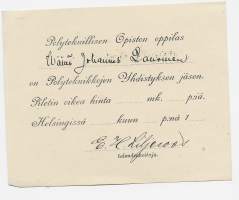 Polyteknillisen Opiston oppilas
Väinö Johannes Launonen
on Polyteknikkojen Yhdistyksen jäsen.
Piletin oikea hinta mk. p:nä.
Helsingissä kuun p:nä 1
E. H. Liljeroos
taloudenhoitaja.